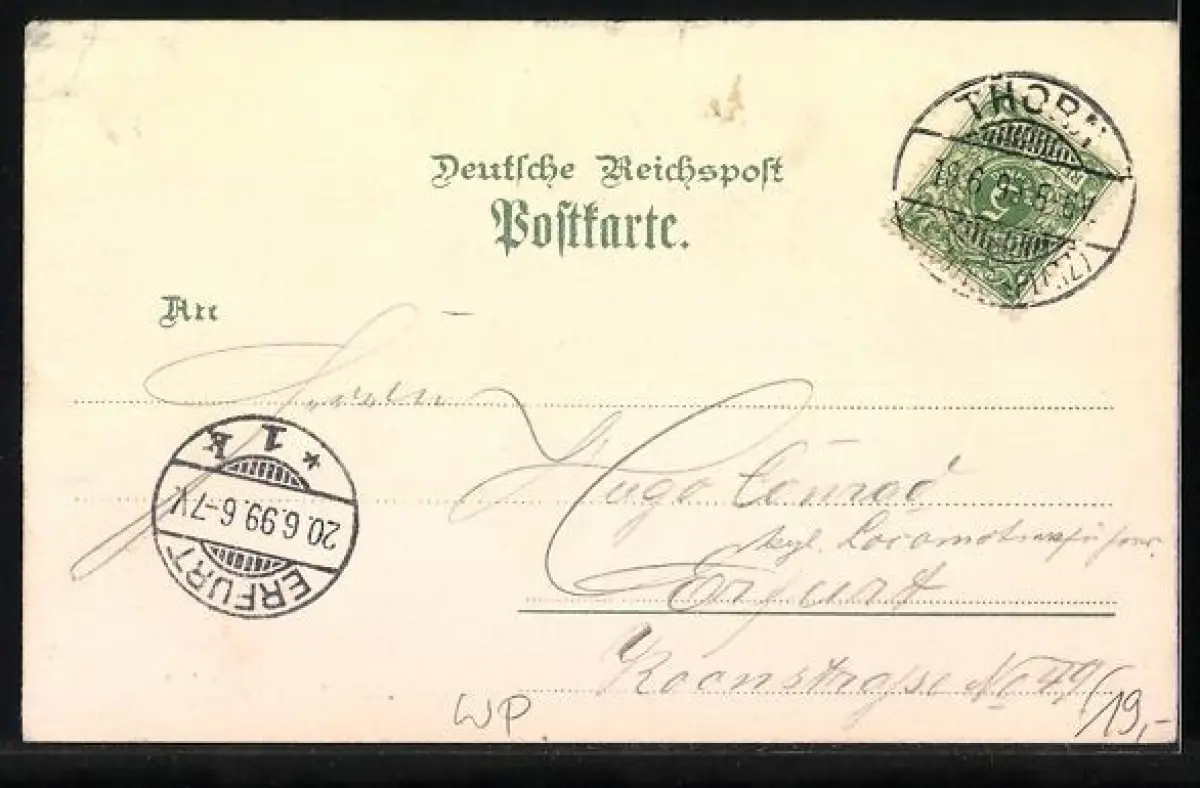 THORN
19.6.99.5-6V.
Deutsche Reichspost
Postkarte.
An
Herrn
Hugo Conrad
kgl. Locomotivführer
Erfurt
Roonstrasse No 49
* 1 k
20.6.99.6-7V
ERFURT
WP
19,-